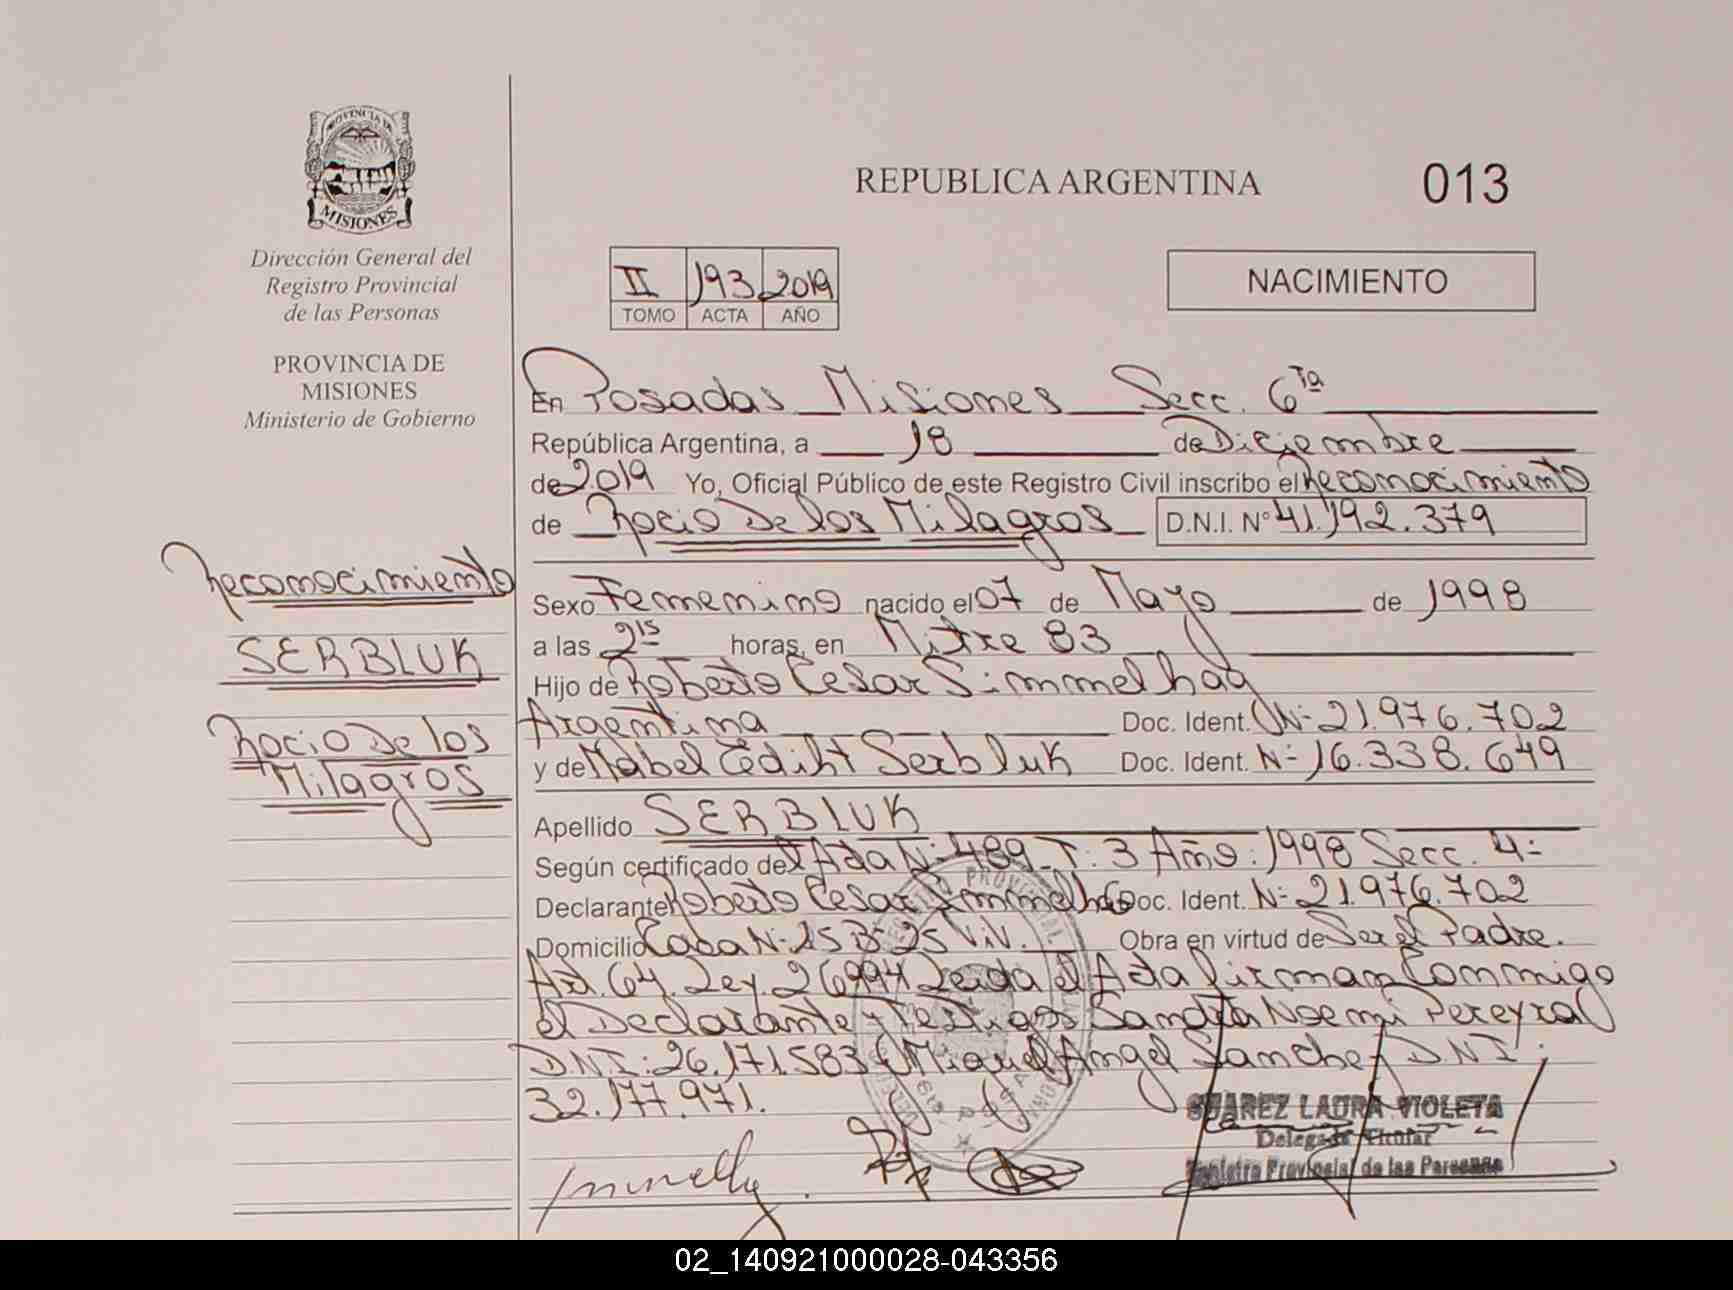 PROVINCIA DE
MISIONES
Dirección General del
Registro Provincial
de las Personas
PROVINCIA DE
MISIONES
Ministerio de Gobierno
REPUBLICA ARGENTINA
013
II 193 2019
TOMO ACTA AÑO
NACIMIENTO
En Posadas Misiones Secc. 6ta
República Argentina, a 18 de Diciembre
de 2019 Yo, Oficial Público de este Registro Civil inscribo el Reconocimiento
de Rocio De los Milagros D.N.I. N° 41.192.379
Reconocimiento
SERBLUK
Rocio De los
Milagros
Sexo Femenino nacido el 07 de Mayo de 1998
a las 2 hs horas, en Mitre 83
Hijo de Roberto Cesar Simmelhag
Argentina Doc. Ident. N- 21.976.702
y de Mabel Ediht Serbluk Doc. Ident. N- 16.338.649
Apellido SERBLUK
Según certificado del Acta N- 489 T: 3 Año: 1998 Secc. 4-
Declarante Roberto Cesar Simmelhag Doc. Ident. N- 21.976.702
Domicilio Casa N- 15 B- 25 Viv. Obra en virtud de Ser el Padre.
Art. 64. Ley. 26994 Leida el Acta firman Conmigo
el Declarante y Testigos Sandra Noemi Pereyra
D.N.I.: 26.171.583 y Miguel Angel Sanchez D.N.I:
32.177.971.
SUAREZ LAURA VIOLETA
Delegada Titular
Registro Provincial de las Personas
02_140921000028-043356